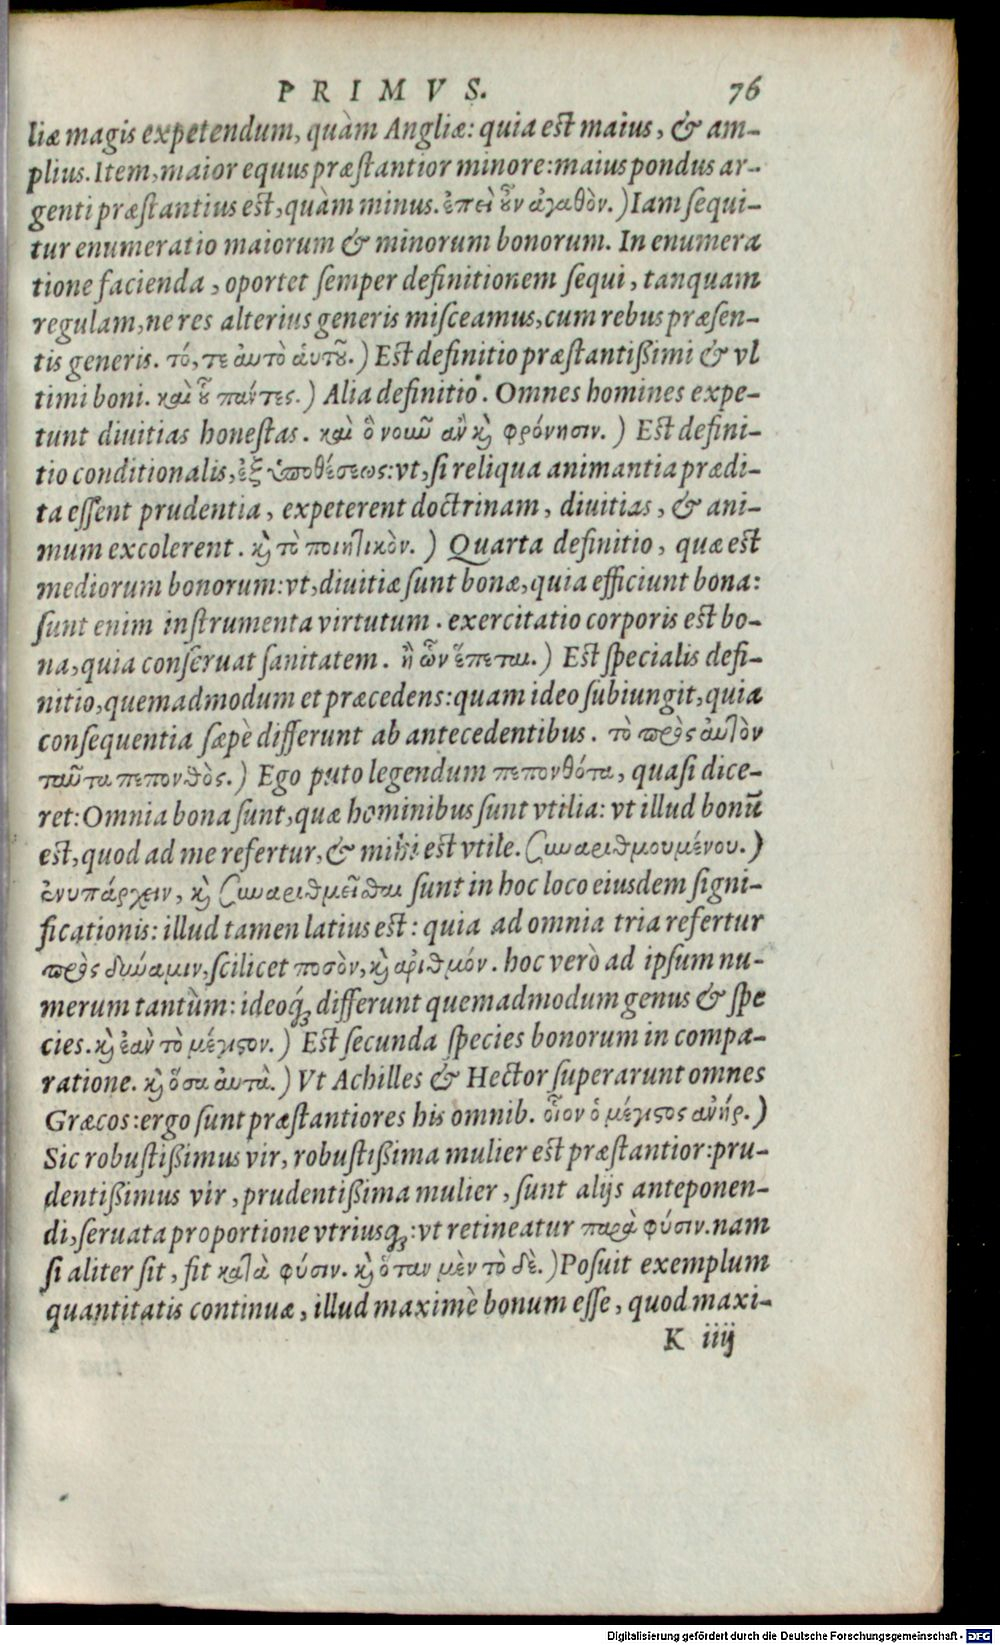 PRIMVS. 76
liæ magis expetendum, quàm Angliæ: quia est maius, & am-
plius. Item, maior equus præstantior minore: maius pondus ar-
genti præstantius est, quàm minus. ἐπεὶ οὖν ἀγαθὸν.) Iam sequi-
tur enumeratio maiorum & minorum bonorum. In enumera
tione facienda, oportet semper definitionem sequi, tanquam
regulam, ne res alterius generis misceamus, cum rebus præsen-
tis generis. τό, τε ἀυτὸ ἁυτοῦ.) Est definitio præstantißimi & vl
timi boni. καὶ οὗ πάντες.) Alia definitio. Omnes homines expe-
tunt diuitias honestas. καὶ ὃ νοῦν ἂν καὶ φρόνησιν.) Est defini-
tio conditionalis, ἐξ ὑποθέσεως: vt, si reliqua animantia prædi-
ta essent prudentia, expeterent doctrinam, diuitias, & ani-
mum excolerent. καὶ τὸ ποιητικὸν.) Quarta definitio, quæ est
mediorum bonorum: vt, diuitiæ sunt bonæ, quia efficiunt bona:
sunt enim instrumenta virtutum. exercitatio corporis est bo-
na, quia conseruat sanitatem. ἢ ὧν ἕπεται.) Est specialis defi-
nitio, quemadmodum et præcedens: quam ideo subiungit, quia
consequentia sæpè differunt ab antecedentibus. τὸ πρὸς ἀυτὸν
ταῦτα πεπονθὸς.) Ego puto legendum πεπονθότα, quasi dice-
ret: Omnia bona sunt, quæ hominibus sunt vtilia: vt illud bonū
est, quod ad me refertur, & mihi est vtile. συναριθμουμένου.)
ἐνυπάρχειν, καὶ συναριθμεῖσθαι sunt in hoc loco eiusdem signi-
ficationis: illud tamen latius est: quia ad omnia tria refertur
πρὸς δύναμιν, scilicet ποσὸν, καὶ ἀριθμόν. hoc verò ad ipsum nu-
merum tantùm: ideoq́; differunt quemadmodum genus & spe
cies. καὶ ἐὰν τὸ μέγιστον.) Est secunda species bonorum in compa-
ratione. καὶ ὅσα ἀυτὰ.) Vt Achilles & Hector superarunt omnes
Græcos: ergo sunt præstantiores his omnib. οἷον ὁ μέγιστος ἀνήρ.)
Sic robustißimus vir, robustißima mulier est præstantior: pru-
dentißimus vir, prudentißima mulier, sunt alijs anteponen-
di, seruata proportione vtriusq́;: vt retineatur παρὰ φύσιν. nam
si aliter sit, fit κατὰ φύσιν. καὶ ὅταν μὲν τὸ δὲ.) Posuit exemplum
quantitatis continuæ, illud maximè bonum esse, quod maxi-
K iiij
Digitalisierung gefördert durch die Deutsche Forschungsgemeinschaft - DFG